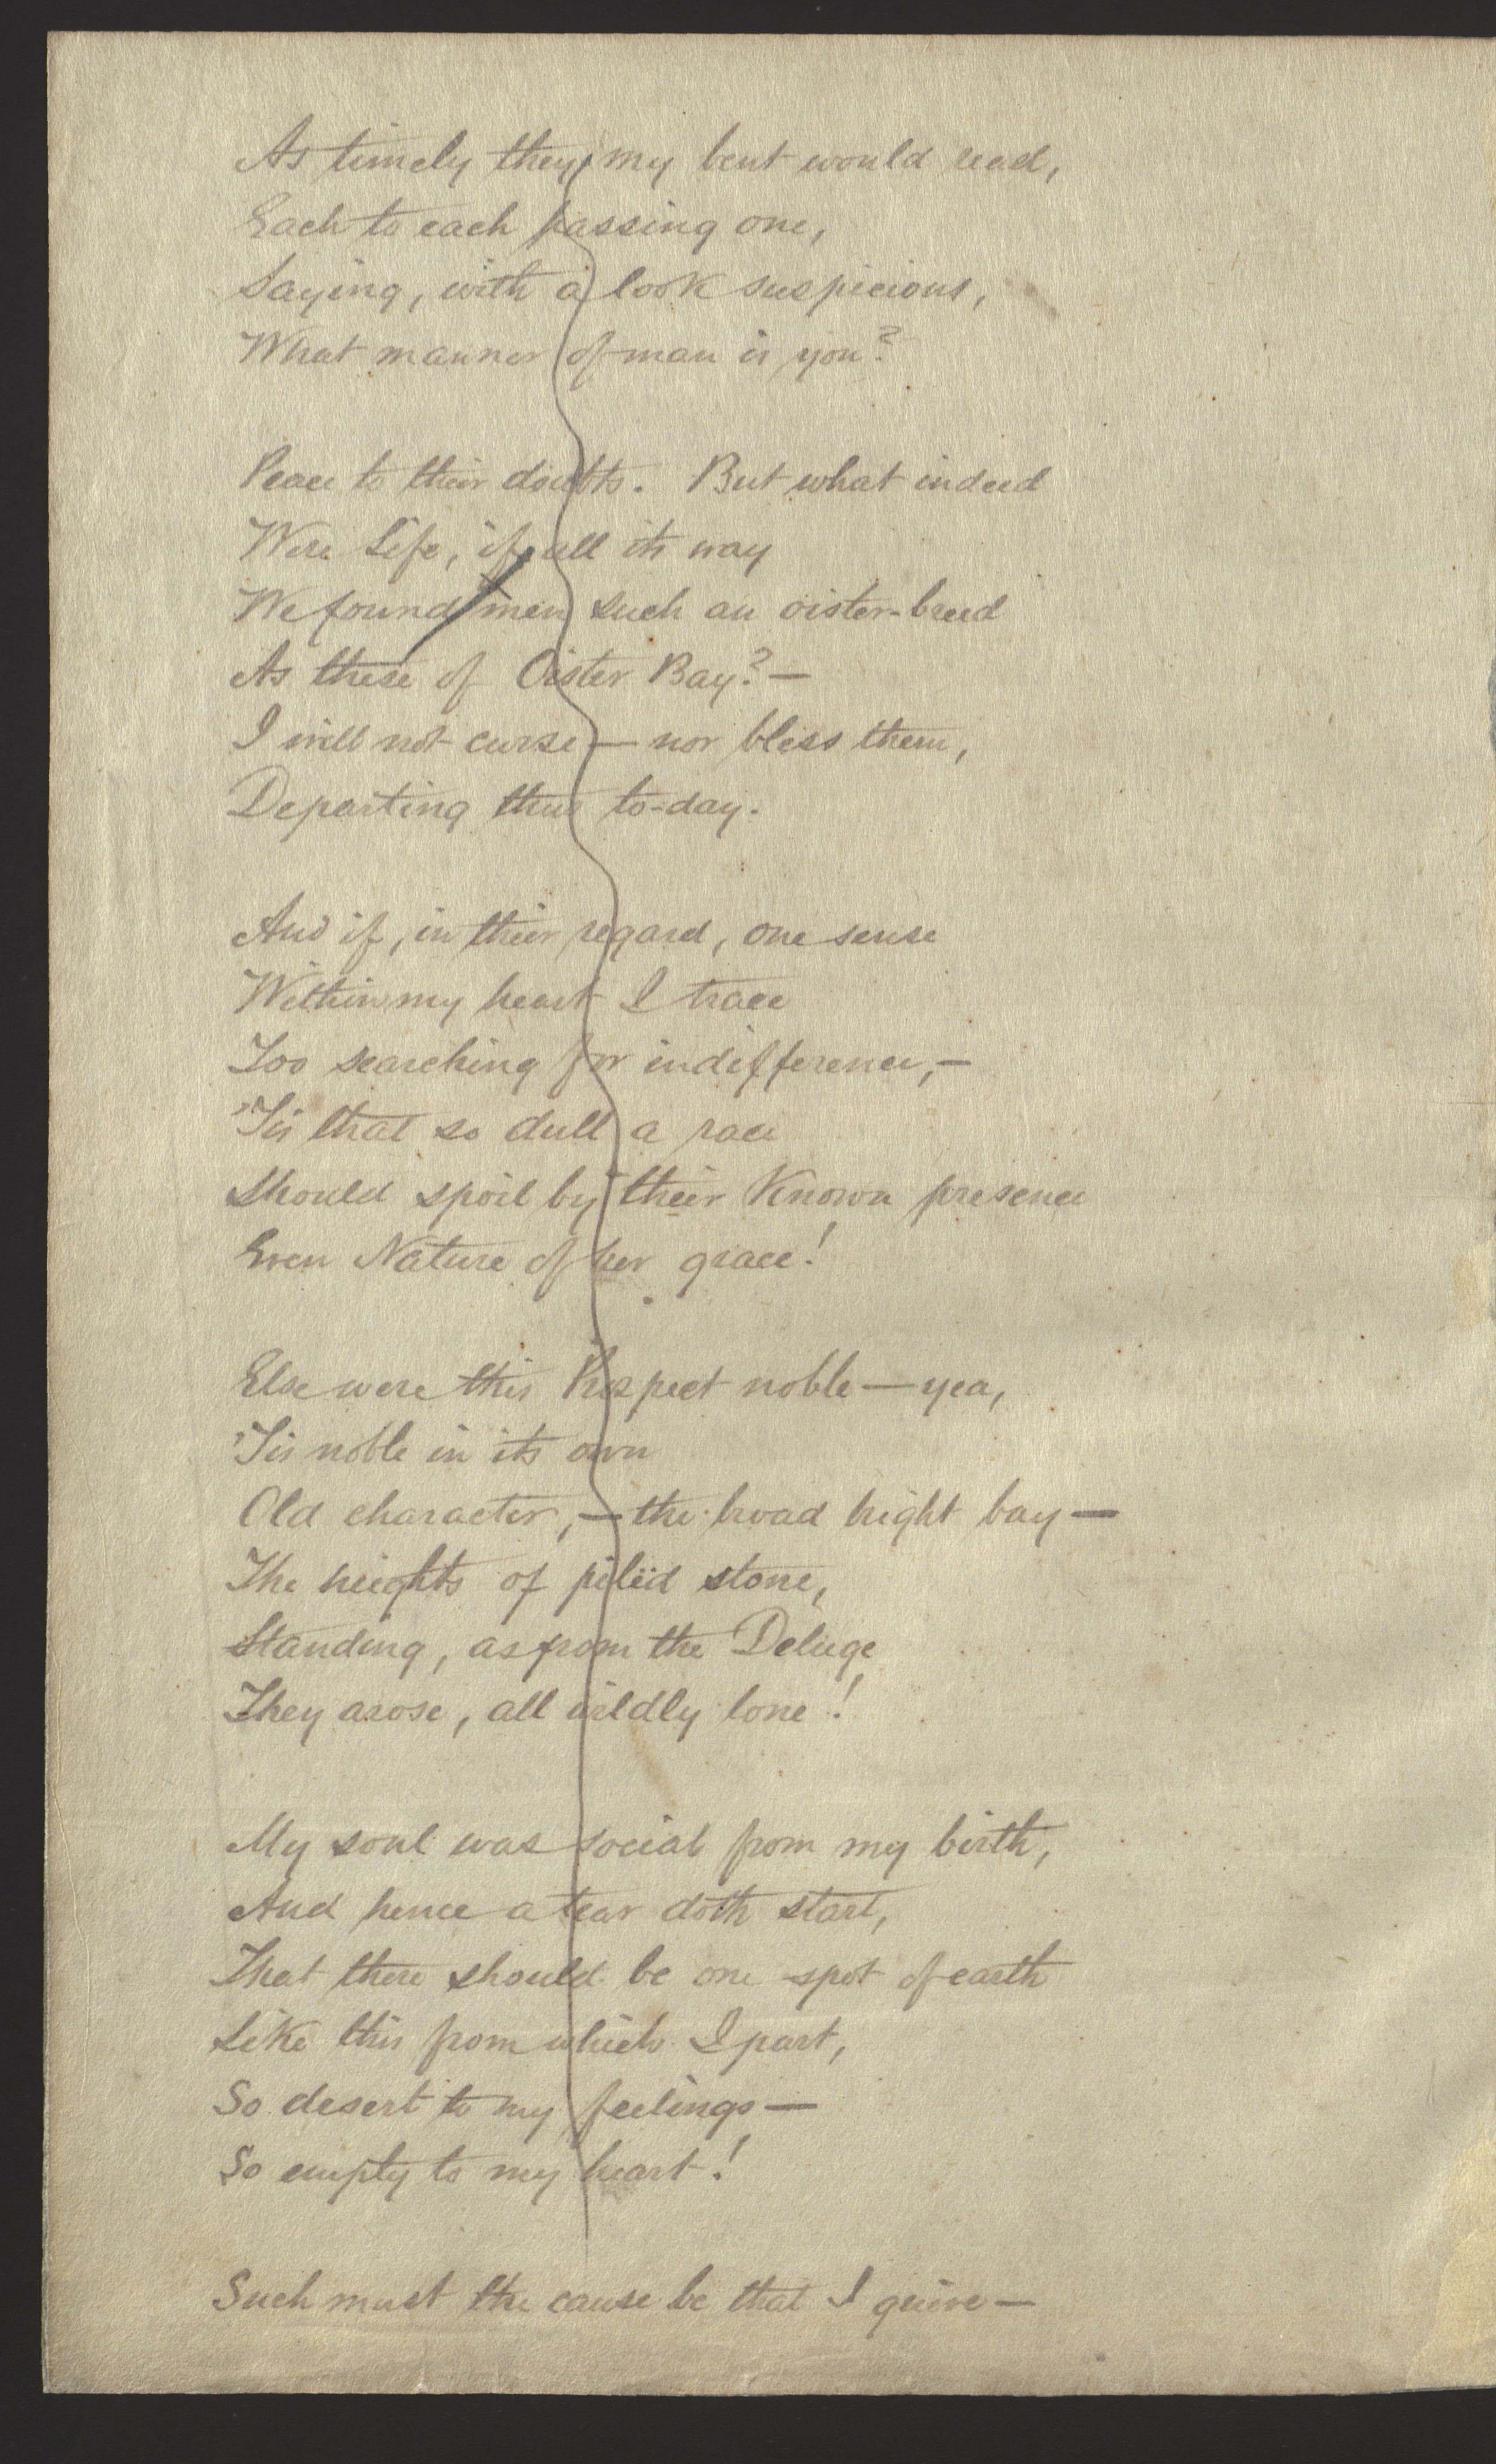 As timely they my bent would read,
Each to each passing one,
Saying, with a look suspicious,
What manner of man is you?
Peace to their doubts. But what indeed
Were Life, if all its way
We found men such an oister-breed
As these of Oister Bay?—
I will not curse — nor bless them,
Departing thus to-day.
And if, in their regard, one sense
Within my heart I trace
Too searching for indifference,—
'Tis that so dull a race
Should spoil by their Known presence
Even Nature of her grace!
Else were this Prospect noble — yea,
'Tis noble in its own
Old character,— the broad bright bay —
The heights of piled stone,
Standing, as from the Deluge
They arose, all wildly lone!
My soul was social from my birth,
And hence a tear doth start,
That there should be one spot of earth
Like this from which I part,
So desert to my feelings —
So empty to my heart!
Such must the cause be that I grieve —